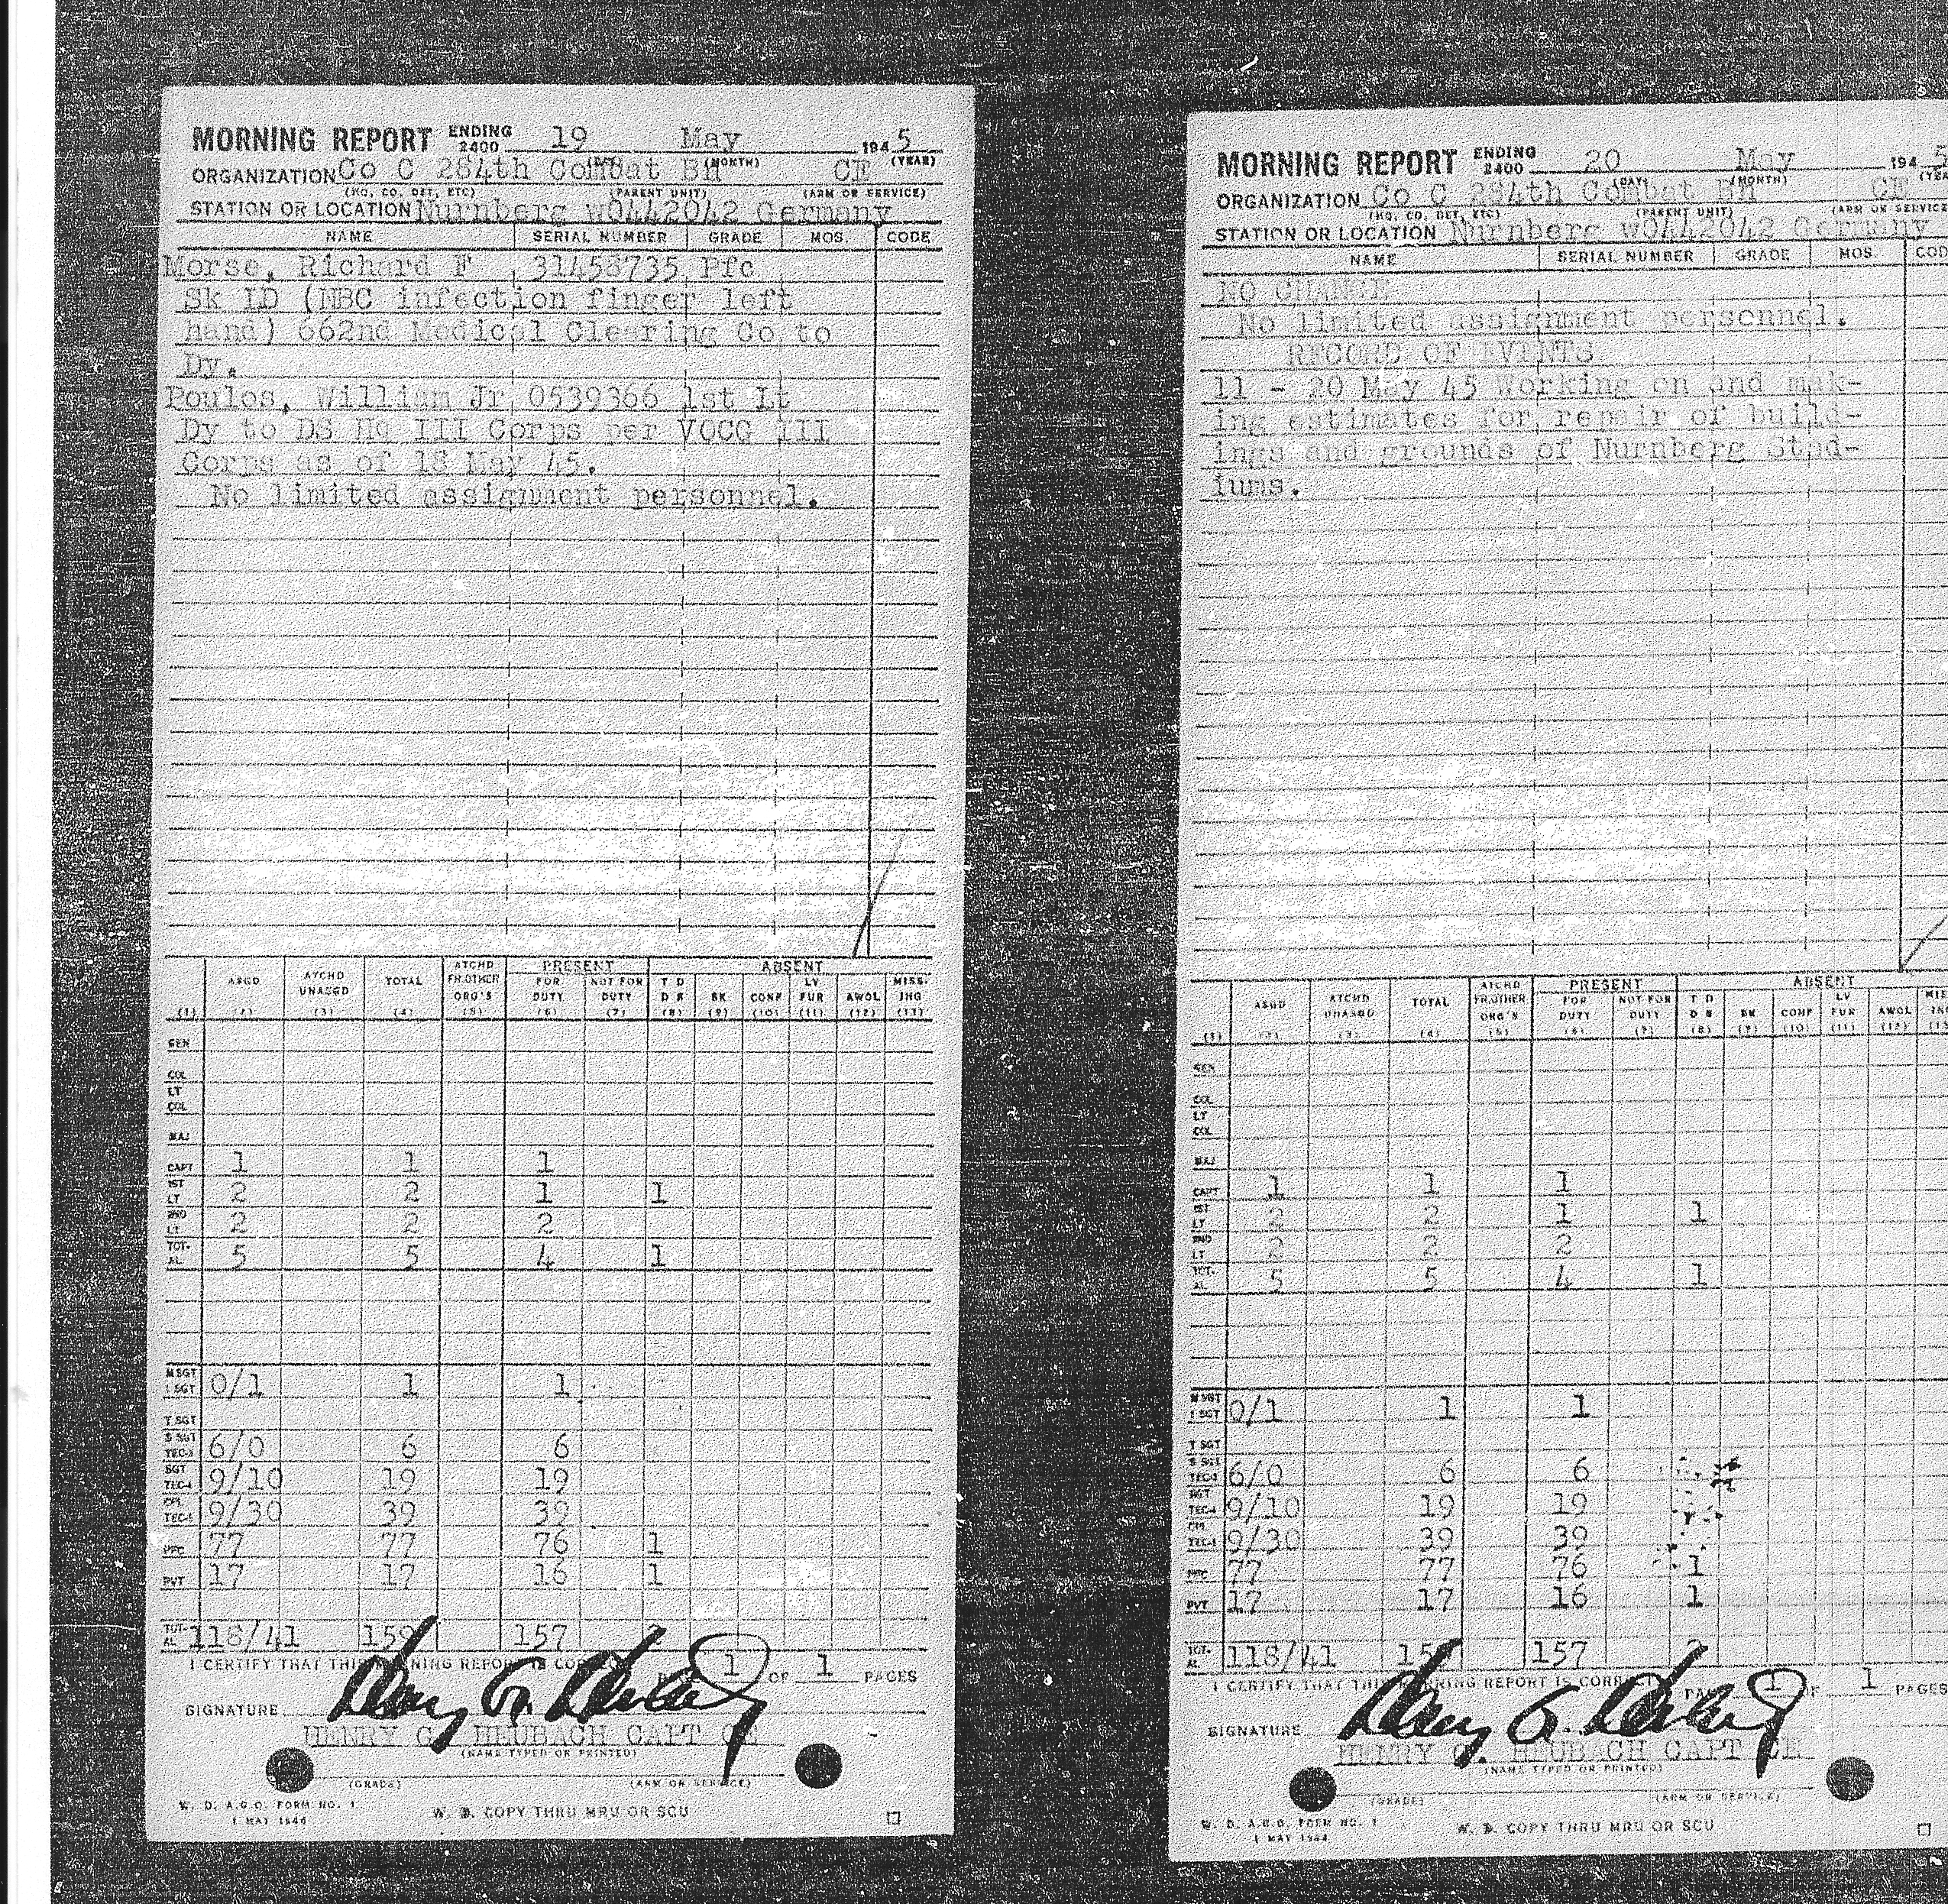 MORNING REPORT ENDING 2400 19 May 1945
(DAY) (MONTH) (YEAR)
ORGANIZATION Co C 284th Combat Bn CE
(HQ, CO, DET, ETC) (PARENT UNIT) (ARM OR SERVICE)
STATION OR LOCATION Nurnberg w0442042 Germany
NAME SERIAL NUMBER GRADE MOS. CODE
Morse, Richard F 31458735 Pfc
Sk ID (NBC infection finger left
hand) 662nd Medical Clearing Co to
Dy.
Poulos, William Jr 0539366 1st Lt
Dy to DS Hq III Corps per VOCG III
Corps as of 18 May 45.
No limited assignment personnel.
ASGD ATCHD UNASGD TOTAL ATCHD FR.OTHER ORG'S PRESENT FOR DUTY NOT FOR DUTY ABSENT T D D S SK CONF LV FUR AWOL MISS-ING
(1) (2) (3) (4) (5) (6) (7) (8) (9) (10) (11) (12) (13)
GEN
COL
LT COL
MAJ
CAPT 1 1 1
1ST LT 2 2 1 1
2ND LT 2 2 2
TOT-AL 5 5 4 1
M SGT 1 SGT 0/1 1 1
T SGT
S SGT TEC-3 6/0 6 6
SGT TEC-4 9/10 19 19
CPL TEC-5 9/30 39 39
PFC 77 77 76 1
PVT 17 17 16 1
TOT-AL 118/41 159 157 2
I CERTIFY THAT THIS MORNING REPORT IS CORRECT PAGE 1 OF 1 PAGES
SIGNATURE Henry G. Heubach
HENRY G. HEUBACH CAPT CE
(NAME TYPED OR PRINTED)
(GRADE) (ARM OR SERVICE)
W. D. A.G.O. FORM NO. 1
1 MAY 1944
W. D. COPY THRU MRU OR SCU
MORNING REPORT ENDING 2400 20 May 1945
(DAY) (MONTH)
ORGANIZATION Co C 284th Combat Bn CE
(HQ, CO, DET, ETC) (PARENT UNIT) (ARM OR SERVICE
STATION OR LOCATION Nurnberg w0442042 Germany
NAME SERIAL NUMBER GRADE MOS. COD
NO CHANGE
No limited assignment personnel.
RECORD OF EVENTS
11 - 20 May 45 Working on and mak-
ing estimates for repair of build-
ings and grounds of Nurnberg Stad-
iums.
ASGD ATCHD UNASGD TOTAL ATCHD FR.OTHER ORG'S PRESENT FOR DUTY NOT FOR DUTY ABSENT T D D S SK CONF LV FUR AWOL
(1) (2) (3) (4) (5) (6) (7) (8) (9) (10) (11) (12)
GEN
COL
LT COL
MAJ
CAPT 1 1 1
1ST LT 2 2 1 1
2ND LT 2 2 2
TOT-AL 5 5 4 1
M SGT 1 SGT 0/1 1 1
T SGT
S SGT TEC-3 6/0 6 6
SGT TEC-4 9/10 19 19
CPL TEC-5 9/30 39 39
PFC 77 77 76 1
PVT 17 17 16 1
TOT-AL 118/41 159 157 2
I CERTIFY THAT THIS MORNING REPORT IS CORRECT PAGE 1 OF 1 PAGES
SIGNATURE Henry G. Heubach
HENRY G. HEUBACH CAPT CE
(NAME TYPED OR PRINTED)
(GRADE) (ARM OR SERVICE)
W. D. A.G.O. FORM NO. 1
1 MAY 1944
W. D. COPY THRU MRU OR SCU